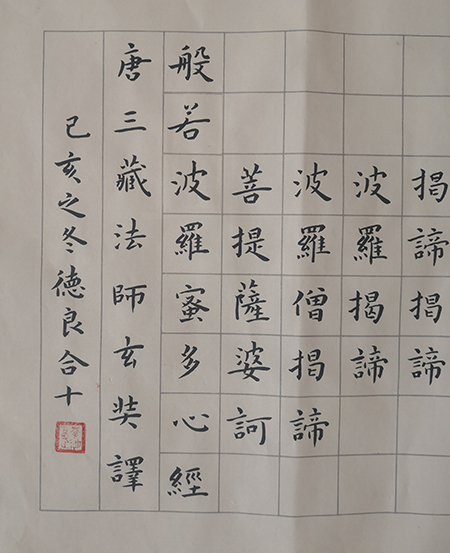 揭諦揭諦
波羅揭諦
波羅僧揭諦
菩提薩婆訶
般若波羅蜜多心經
唐三藏法師玄奘譯
己亥之冬德良合十